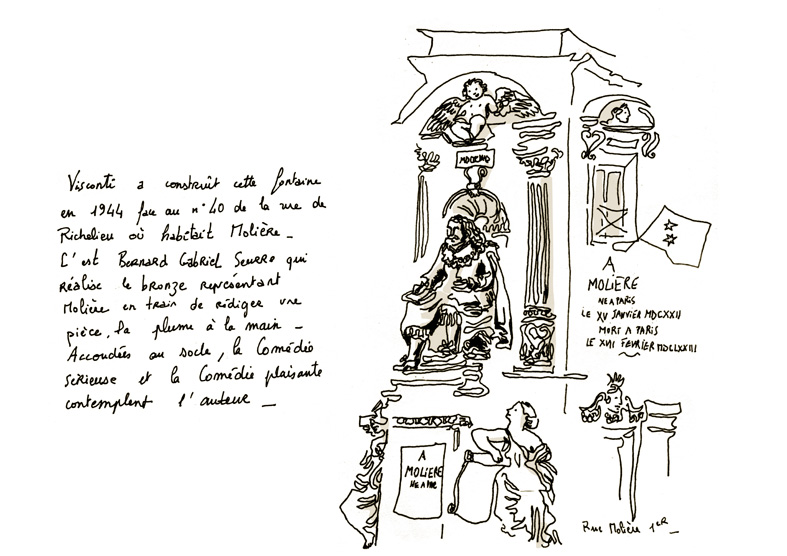 Visconti a construît cette fontaine
en 1944 face au n°40 de la rue de
Richelieu où habitait Molière_
C'est BERNARD GABRIEL SEURRE qui
réalise le bronze représentant
Molière en train de rédiger une
pièce, la plume à la main_
Accoudées au socle, la Comédie
sérieuse et la Comédie plaisante
contemplent l'auteur_
A
MOLIÈRE
NE A PARIS
LE XV JANVIER MDCXXII
MORT A PARIS
LE XVII FEVRIER MDCLXXIII
A
MOLIERE
NE A PAR
Rue Molière 1ER_